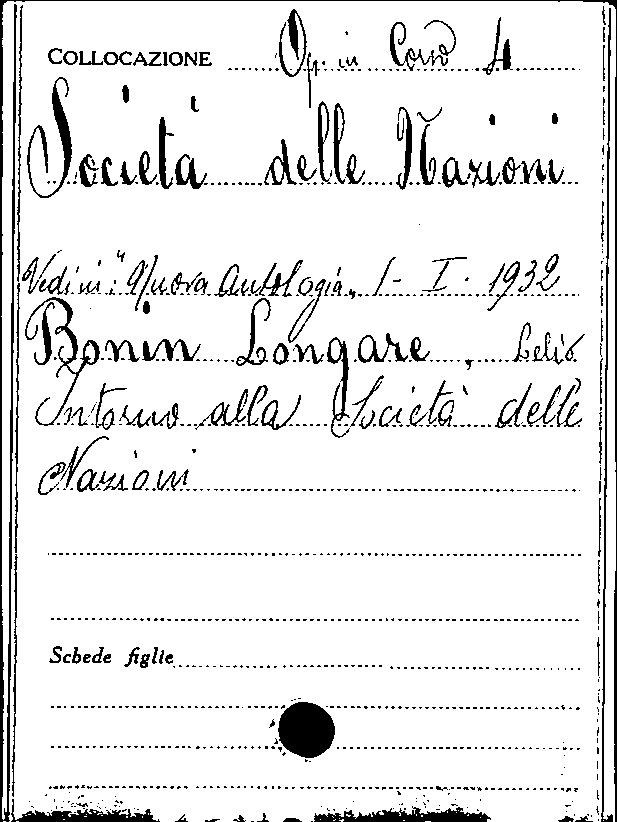 COLLOCAZIONE Op. in Corso 4
Società delle Nazioni
Vedi in: "Nuova Antologia" 1 - I. 1932
Bonin Longare, Lelio
Intorno alla Società delle
Nazioni
Schede figlie